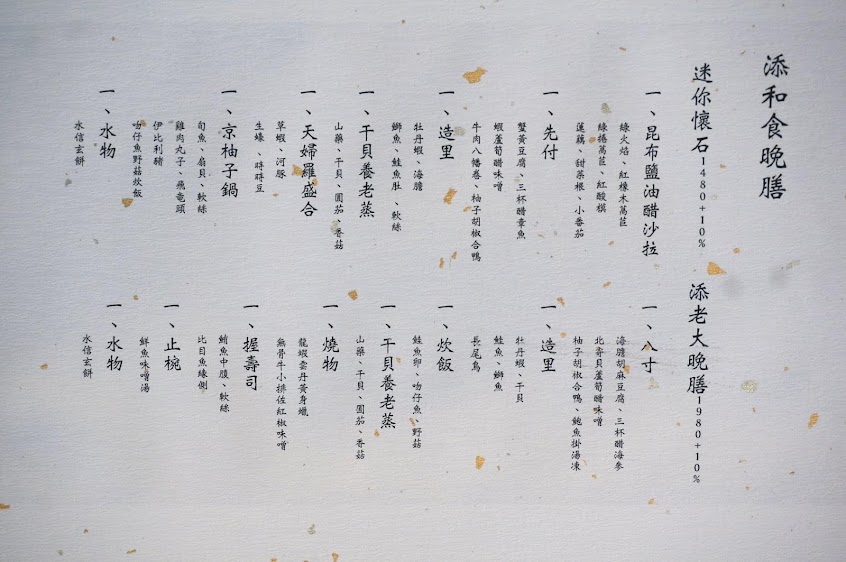 添和食晚膳
迷你懷石1480+10%
一、昆布鹽油醋沙拉
綠火焰、紅橡木萵苣
綠捲萵苣、紅酸模
蓮藕、甜菜根、小番茄
一、先付
蟹黃豆腐、三杯醋章魚
蝦蘆筍醋味噌
牛肉八幡卷、柚子胡椒合鴨
一、造里
牡丹蝦、海膽
鰤魚、鮭魚肚、軟絲
一、干貝養老蒸
山藥、干貝、圓茄、香菇
一、天婦羅盛合
草蝦、河豚
生蠔、四時豆
一、京柚子鍋
旬魚、扇貝、軟絲
雞肉丸子、飛龍頭
伊比利豬
吻仔魚野菇炊飯
一、水物
水信玄餅
添老大晚膳1980+10%
一、八寸
海膽胡麻豆腐、三杯醋海參
北寄貝蘆筍醋味噌
柚子胡椒合鴨、鮑魚掛湯凍
一、造里
牡丹蝦、干貝
鮭魚、鰤魚
長尾鳥
一、炊飯
鮭魚卵、吻仔魚、野菇
一、干貝養老蒸
山藥、干貝、圓茄、香菇
一、燒物
龍蝦雲丹黃身蠟
無骨牛小排佐紅椒味噌
一、握壽司
鮪魚中腹、軟絲
比目魚緣側
一、止椀
鮮魚味噌湯
一、水物
水信玄餅